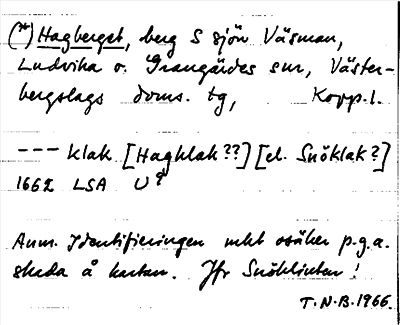 (*) Hagberget, berg S sjön Väsman,
Ludvika o. Grangärdes snr, Väster-
bergslags doms. tg, Kopp. l.
--- klak [Hagklak??] [el. Snöklak?]
1662 LSA U
Anm. Identifieringen mkt osäker p.g.a.
skada å kartan. Jfr Snöklinten!
T.N.B. 1966.